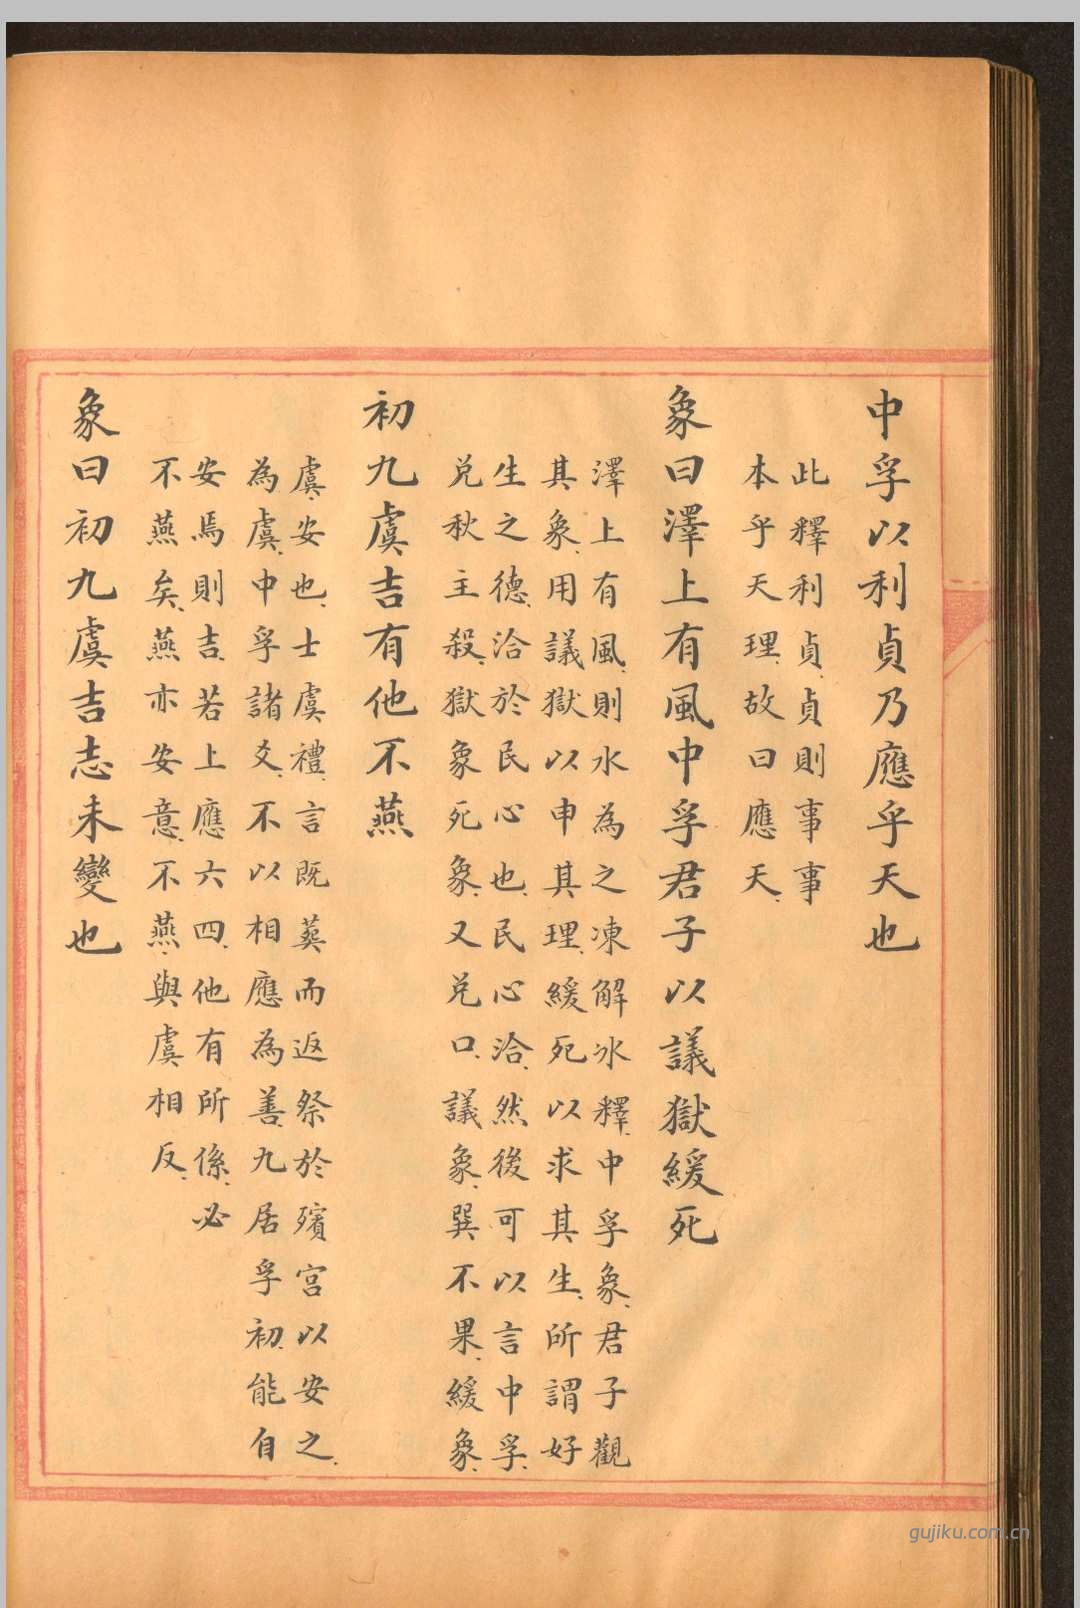 中孚以利貞乃應乎天也
此釋利貞、貞則事事
本乎天理、故曰應天、
象曰澤上有風中孚君子以議獄緩死
澤上有風、則水為之凍解冰釋、中孚象、君子觀
其象、用議獄以申其理、緩死以求其生、所謂好
生之德、洽於民心也、民心洽、然後可以言中孚、
兑秋主殺、獄象死象、又兑口、議象、巽不果、緩象、
初九虞吉有他不燕
虞、安也、士虞禮、言既葬而返祭於殯宮以安之、
為虞、中孚諸爻、不以相應為善、九居孚初、能自
安焉則吉、若上應六四、他有所係、必
不燕矣、燕亦安意、不燕、與虞相反、
象曰初九虞吉志未變也
gujiku.com.cn